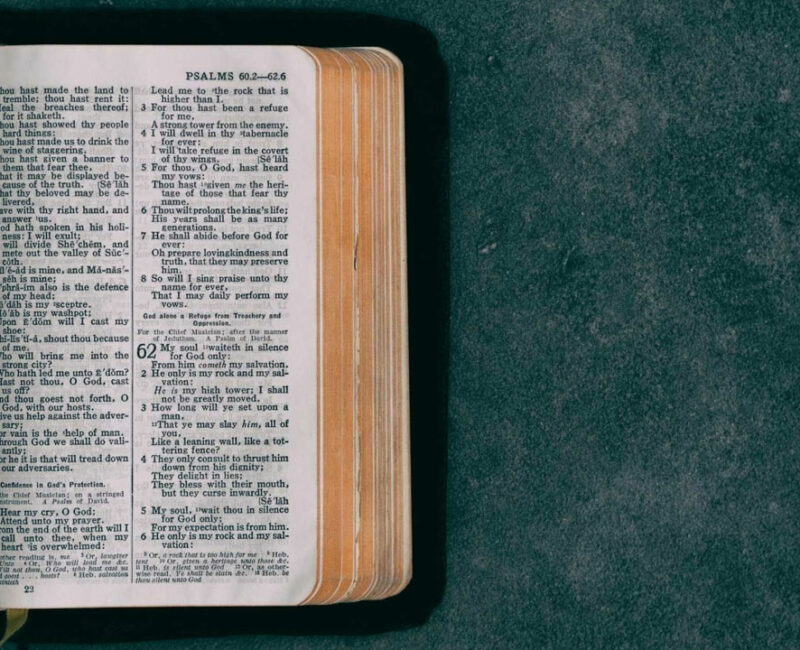 PSALMS 60.2—62.6
hou hast made the land to
tremble; thou hast rent it:
eal the breaches thereof;
for it shaketh.
hou hast showed thy people
hard things:
hou hast made us to drink the
wine of staggering.
hou hast given a banner to
them that fear thee,
hat it may be displayed be-
cause of the truth. [Sē'lăh
hat thy beloved may be de-
livered,
ave with thy right hand, and
answer us.
od hath spoken in his holi-
ness: I will exult;
will divide Shē'chĕm, and
mete out the valley of Sŭc'-
cŏth.
ĭl'ĕ-ăd is mine, and Mȧ-năs'-
sĕh is mine;
phrȧ-ĭm also is the defence
of my head;
ū'dăh is my sceptre.
ō'ăb is my washpot;
pon Ē'dŏm will I cast my
shoe:
hĭ-lĭs'tĭ-ȧ, shout thou because
of me.
ho will bring me into the
strong city?
Who hath led me unto Ē'dŏm?
ast not thou, O God, cast
us off?
nd thou goest not forth, O
God, with our hosts.
ive us help against the adver-
sary;
or vain is the help of man.
hrough God we shall do vali-
antly;
or he it is that will tread down
our adversaries.
Confidence in God's Protection.
the Chief Musician; on a stringed
nstrument. A Psalm of David.
Hear my cry, O God;
Attend unto my prayer.
rom the end of the earth will I
call unto thee, when my
heart is overwhelmed:
other reading is, me Or, lawgiver
Unto Or, Who will lead me &c.
ill not thou, O God, who hast cast us
goest . . . hosts? Heb. salvation
23
Lead me to the rock that is
higher than I.
3 For thou hast been a refuge
for me,
A strong tower from the enemy.
4 I will dwell in thy tabernacle
for ever:
I will take refuge in the covert
of thy wings. [Sē'lăh
5 For thou, O God, hast heard
my vows:
Thou hast given me the heri-
tage of those that fear thy
name.
6 Thou wilt prolong the king's life;
His years shall be as many
generations.
7 He shall abide before God for
ever:
Oh prepare lovingkindness and
truth, that they may preserve
him.
8 So will I sing praise unto thy
name for ever,
That I may daily perform my
vows.
God alone a Refuge from Treachery and
Oppression.
For the Chief Musician; after the manner
of Jeduthun. A Psalm of David.
62 My soul waiteth in silence
for God only:
From him cometh my salvation.
2 He only is my rock and my sal-
vation:
He is my high tower; I shall
not be greatly moved.
3 How long will ye set upon a
man,
That ye may slay him, all of
you,
Like a leaning wall, like a tot-
tering fence?
4 They only consult to thrust him
down from his dignity;
They delight in lies;
They bless with their mouth,
but they curse inwardly.
[Sē'lăh
5 My soul, wait thou in silence
for God only;
For my expectation is from him.
6 He only is my rock and my sal-
vation:
Or, a rock that is too high for me Heb.
tent Or, given a heritage unto those &c.
Heb. is silent unto God Or, as other-
wise read, Ye shall be slain &c. Heb. be
thou silent unto God